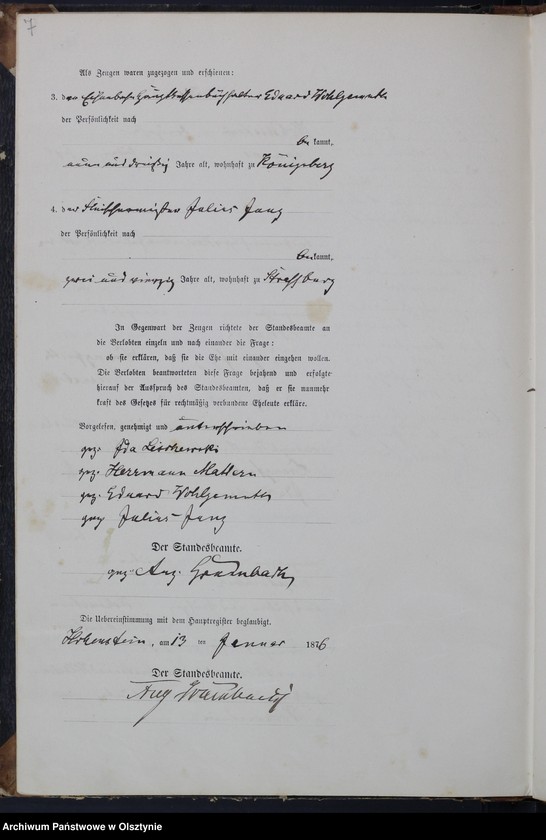 7
Als Zeugen waren zugezogen und erschienen:
3. der Eisenbahn Hauptkassenbuchhalter Eduard Wohlgemuth
der Persönlichkeit nach
bekannt,
neun und dreißig Jahre alt, wohnhaft zu Königsberg
4. der Fleischermeister Julius Jang
der Persönlichkeit nach
bekannt,
zwei und vierzig Jahre alt, wohnhaft zu Straßburg
In Gegenwart der Zeugen richtete der Standesbeamte an
die Verlobten einzeln und nach einander die Frage:
ob sie erklären, daß sie die Ehe mit einander eingehen wollen.
Die Verlobten beantworteten diese Frage bejahend und erfolgte
hierauf der Ausspruch des Standesbeamten, daß er sie nunmehr
kraft des Gesetzes für rechtmäßig verbundene Eheleute erkläre.
Vorgelesen, genehmigt und unterschrieben
gez. Ida
gez. Herrmann Mattern
gez. Eduard Wohlgemuth
gez. Julius Jang
Der Standesbeamte.
gez. Aug.
Die Uebereinstimmung mit dem Hauptregister beglaubigt.
Hohenstein, am 13 ten Januar 1876
Der Standesbeamte.
Aug
Archiwum Państwowe w Olsztynie